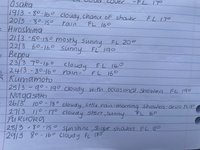 Osaka
29/3 - 8° - 15° cloudy, chance of shower FL 17°
20/3 - 8° - 15° rain FL 16°
Hiroshima
21/3 - 8° - 15° mostly sunny FL 20°
22/3 - 6° - 16° sunny FL 19°
Beppu
23/3 7° - 16° cloudy FL 16°
24/3 - 8° - 16° rain FL 16°
Kumamoto
25/3 - 9° - 19° cloudy, with occasional showers FL 19°
Nagasaki
26/3 10° - 19° cloudy, little rain morning
27/3 10° - 17° cloudy start, sunny FL
Fukuoka
28/3 - 8° - 15° sunshine, slight
29/3 8° - 16° cloudy FL